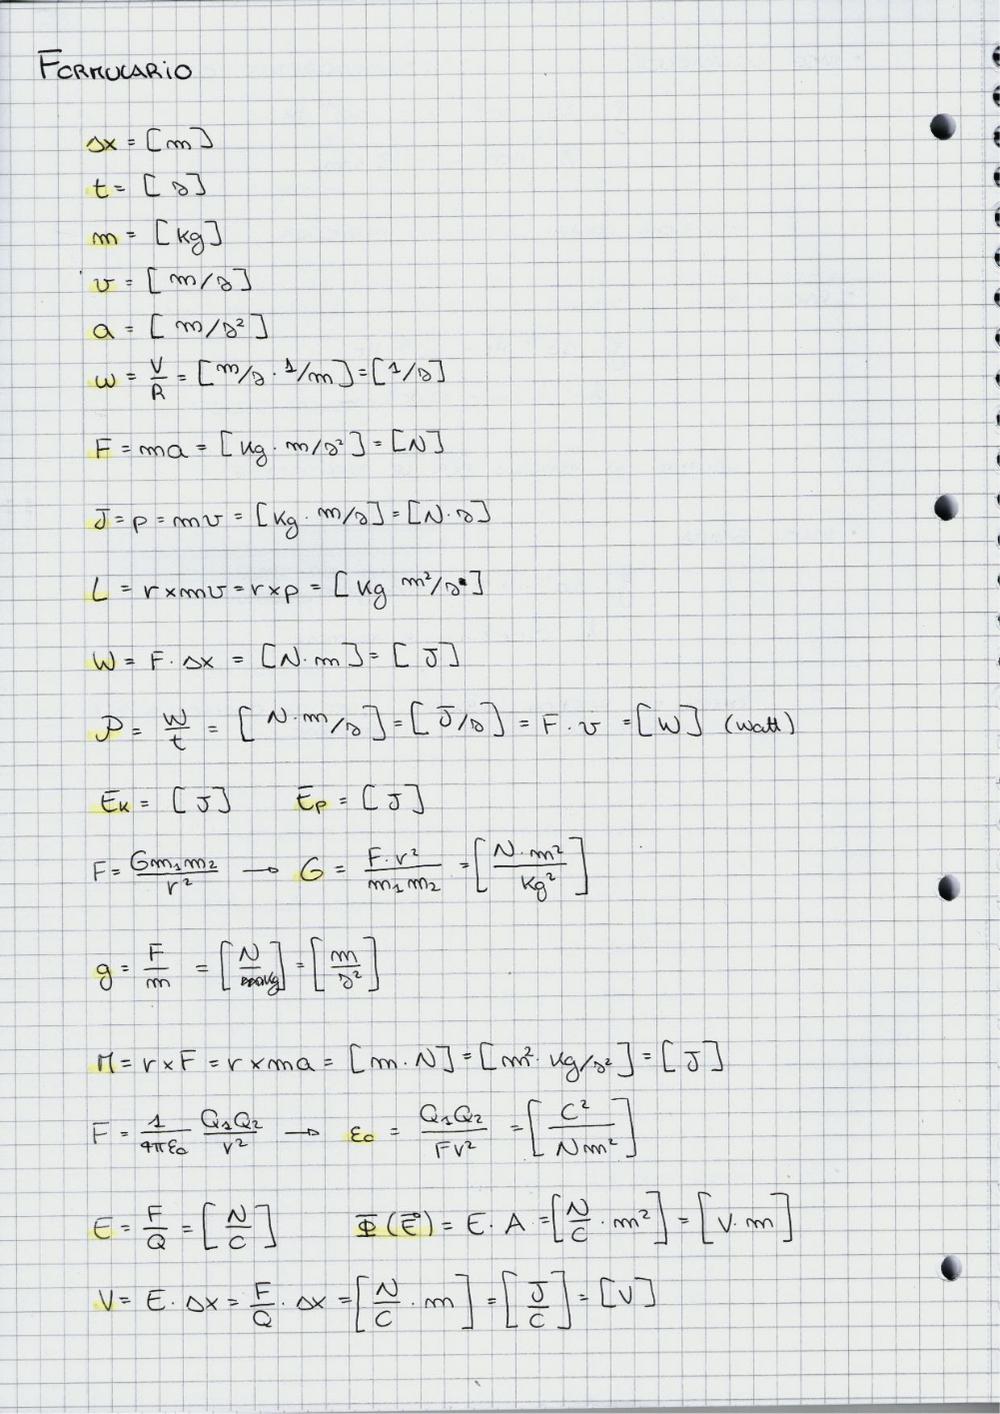 FORMULARIO
Δx = [m]
t = [s]
m = [kg]
v = [m/s]
a = [m/s²]
ω = V/R = [m/s · 1/m] = [1/s]
F = ma = [kg · m/s²] = [N]
J = p = mv = [kg · m/s] = [N·s]
L = r×mv = r×p = [kg m²/s]
W = F · Δx = [N·m] = [J]
P = W/t = [N·m/s] = [J/s] = F · v = [W] (watt)
Ek = [J] Ep = [J]
F = Gm₁m₂/r² → G = F·r²/m₁m₂ = [N·m²/kg²]
g = F/m = [N/kg] = [m/s²]
M = r×F = r×ma = [m·N] = [m² kg/s²] = [J]
F = 1/4πε₀ Q₁Q₂/r² → ε₀ = Q₁Q₂/Fr² = [C²/Nm²]
E = F/Q = [N/C] Φ(E⃗) = E · A = [N/C · m²] = [V·m]
V = E · Δx = F/Q · Δx = [N/C · m] = [J/C] = [V]